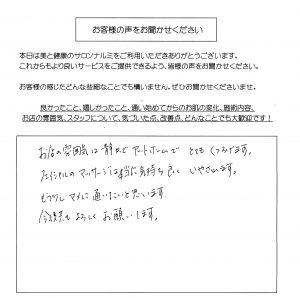 お客様の声をお聞かせください
本日は美と健康のサロンナルミをご利用いただきありがとうございます。
これからもより良いサービスをご提供できるよう、皆様の声をお聞かせください。
お客様の感じたどんな些細なことでも構いません。ぜひお聞かせくださいませ。
良かったこと、嬉しかったこと、通い始めてからのお肌の変化、施術内容、
お店の雰囲気、スタッフについて、気づいた点、改善点、どんなことでも大歓迎です！
お店の雰囲気は静かでアットホームで とてもくつろげます。
フェイシャルのマッサージは本当に気持ち良く いやされます。
もう少しマメに通いたいと思います
今後ともよろしくお願いします。